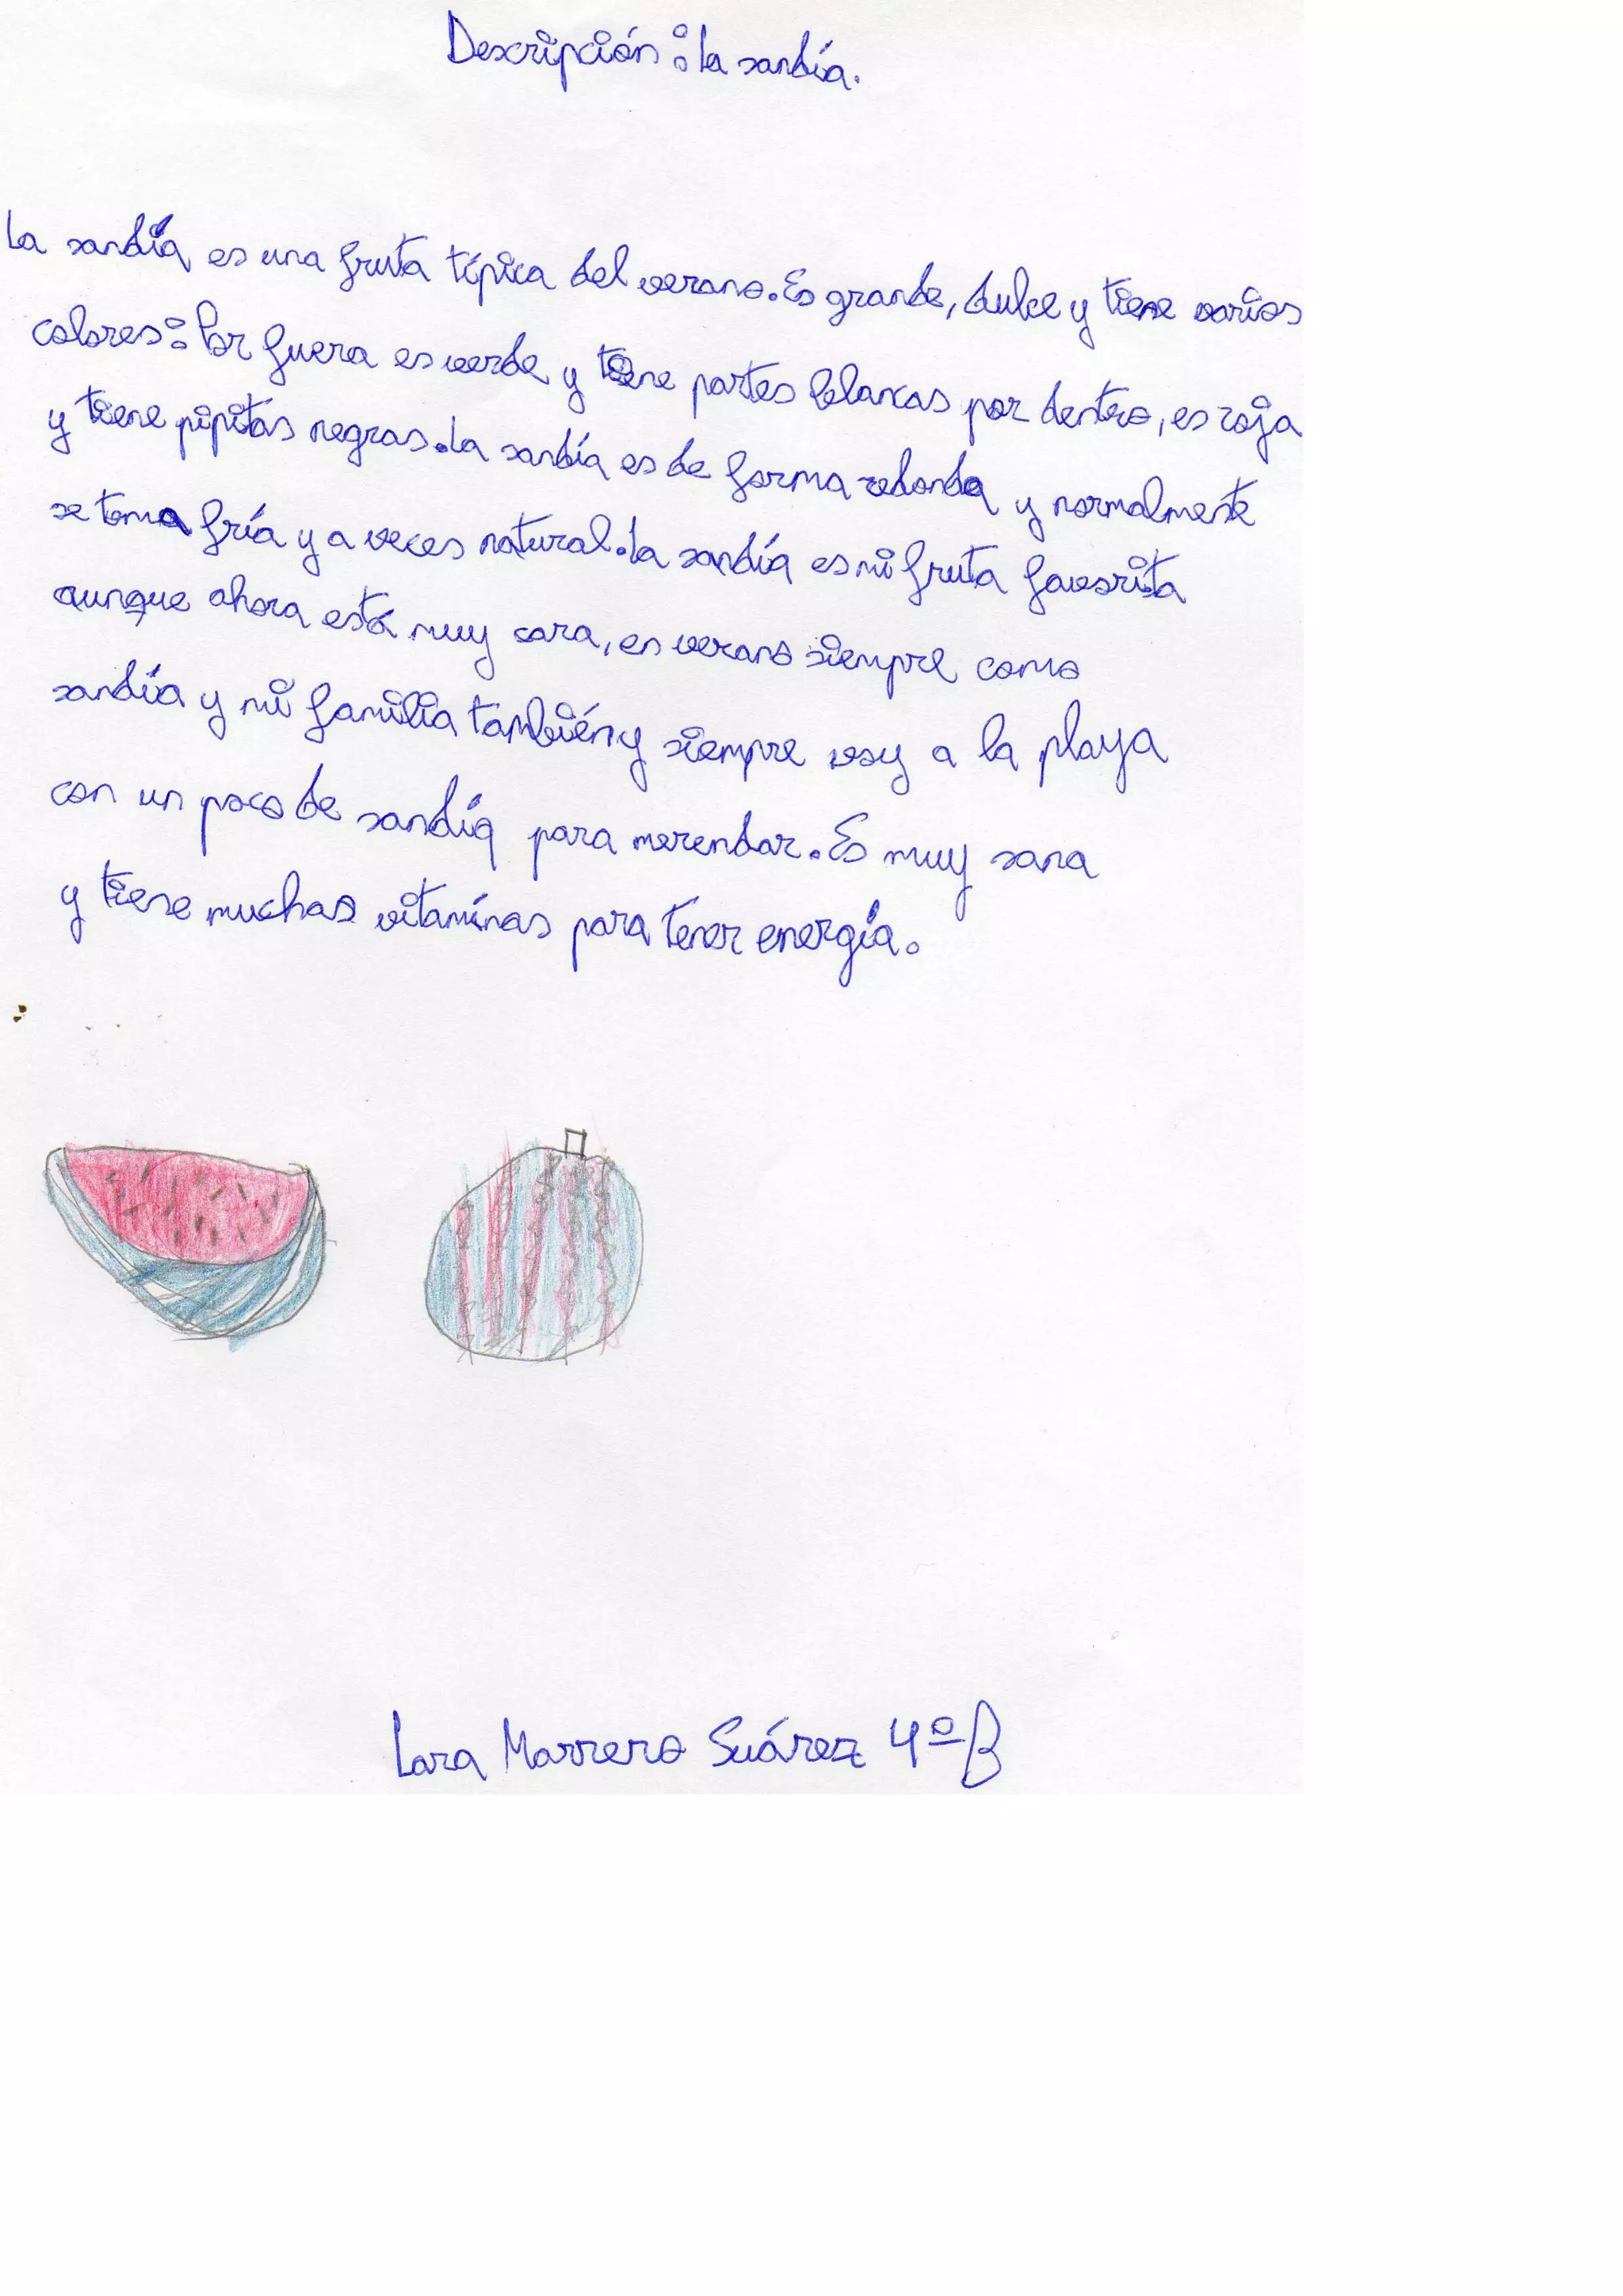 Descripción: la sandía.
La sandía es una fruta típica del verano. Es grande, dulce y tiene varios
colores: Por fuera es verde y tiene partes blancas por dentro, es roja
y tiene pipitas negras. La sandía es de forma redonda y normalmente
se toma fría y a veces natural. La sandía es mi fruta favorita
aunque ahora está muy cara, en verano siempre como
sandía y mi familia también y siempre voy a la playa
con un poco de sandía para merendar. Es muy sana
y tiene muchas vitamínas para tener energía.
Lara Marrero Suárez 4º B